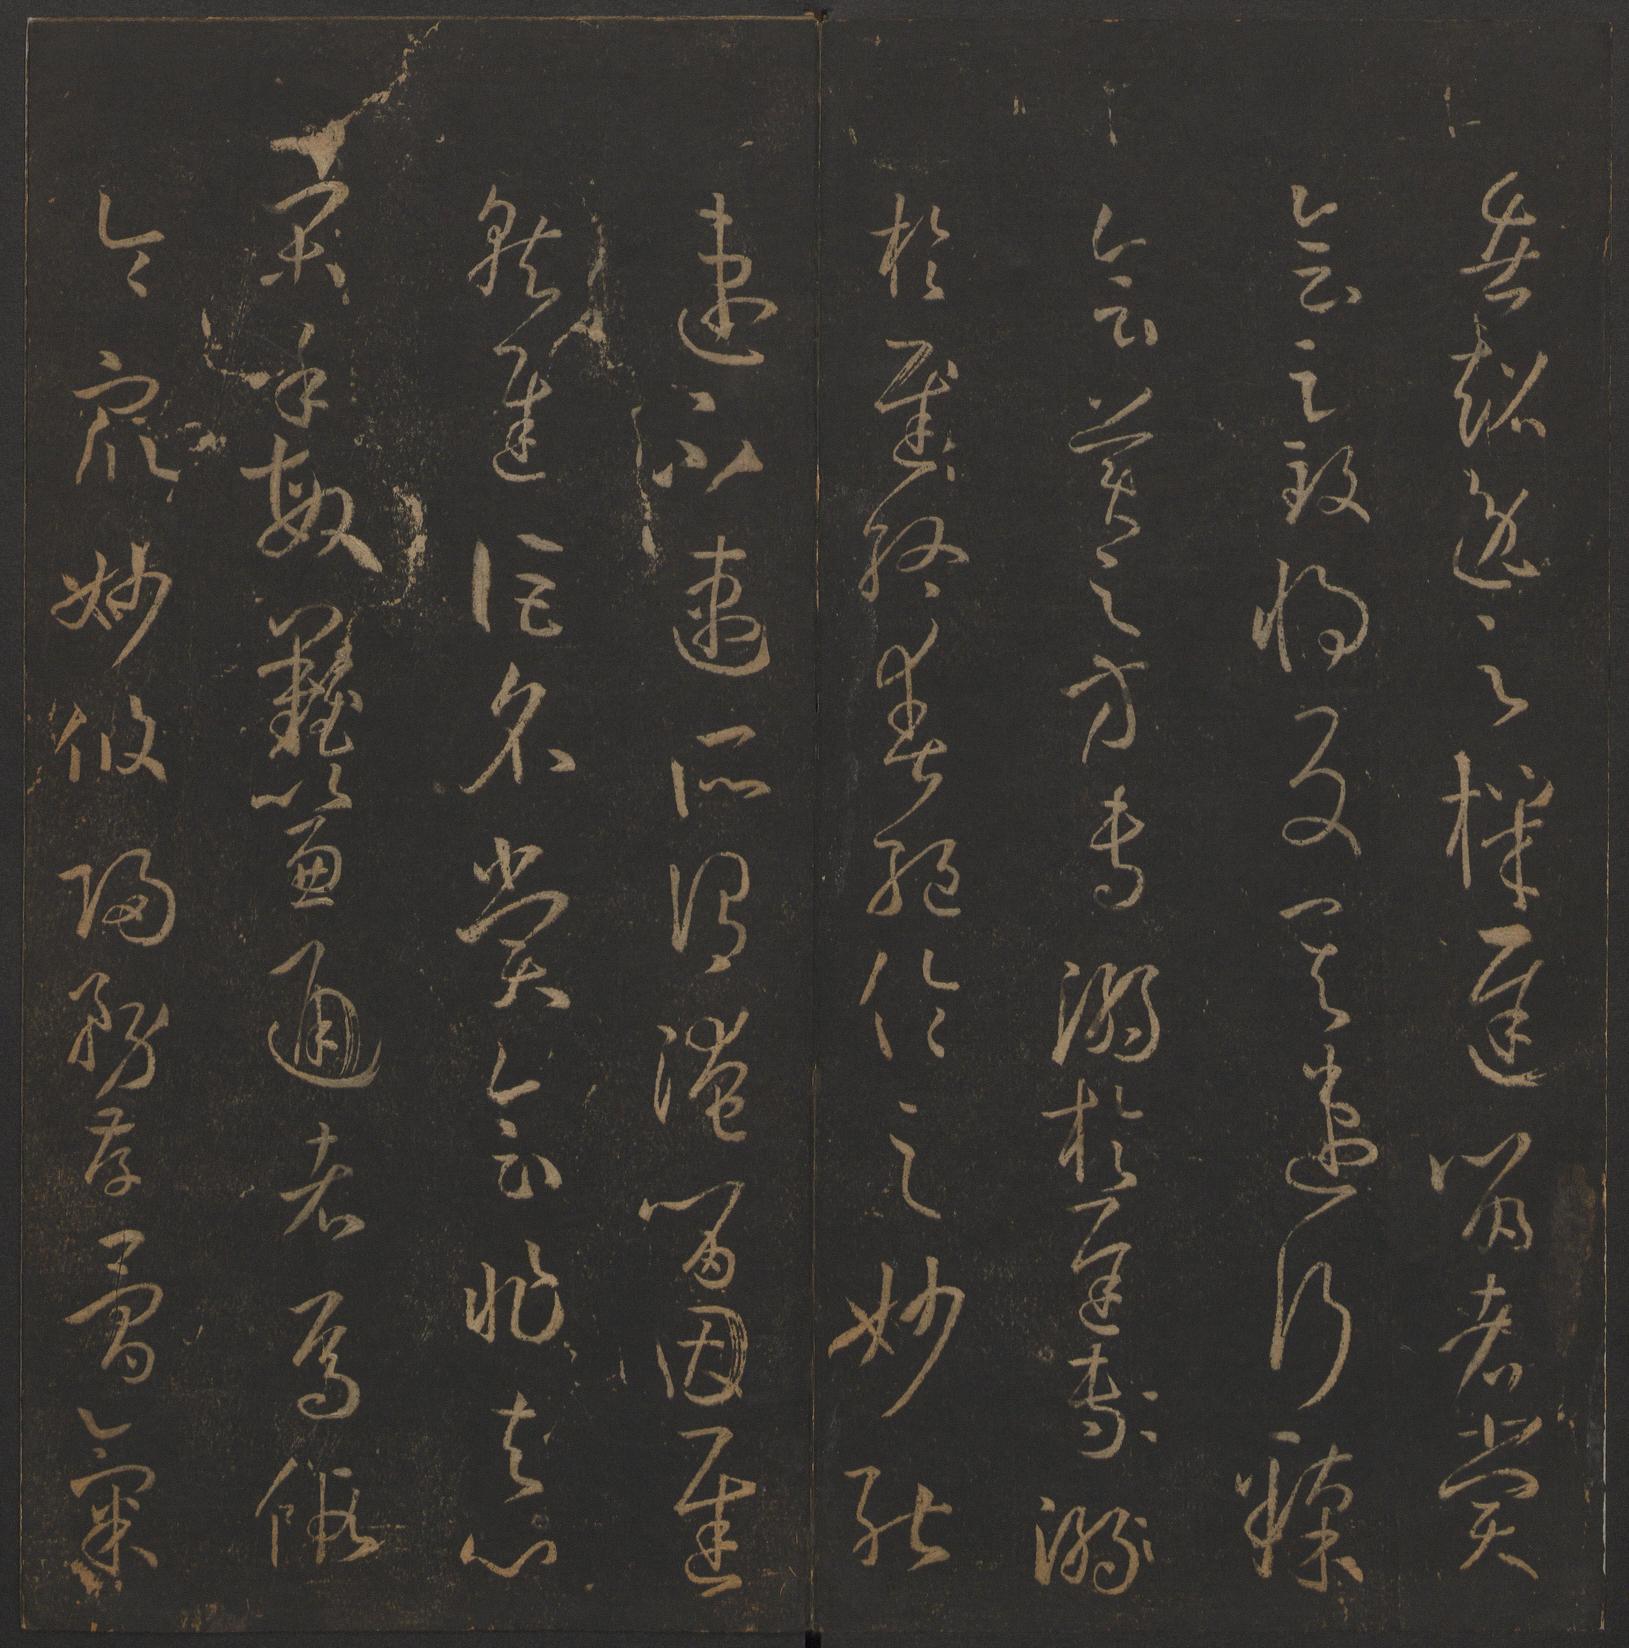 者超逸之機遲留者賞
會之致將反其速行臻
會美之方專溺於遲專溺
於遲終爽絕倫之妙能
速不速所謂淹留因遲
就遲詎名賞會非夫心
閑手敏難以兼通者焉假
令眾妙攸歸務存骨氣